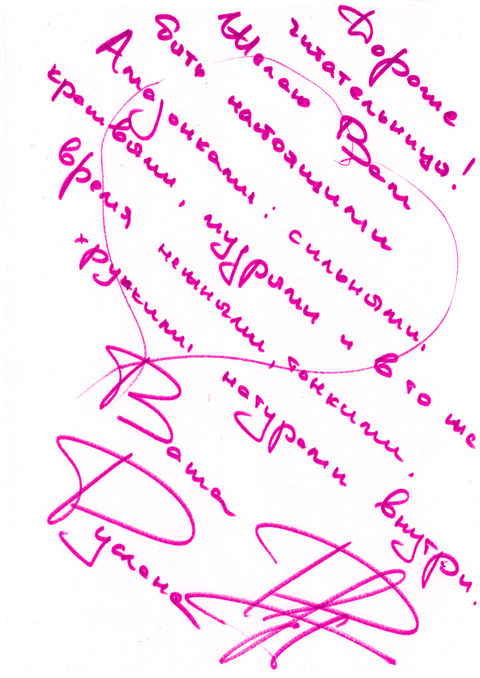 Дорогие
читательницы!
Желаю Вам
быть настоящими
Амазонками: сильными,
красивыми, мудрыми и в то же
время нежными, тонкими,
хрупкими натурами внутри.
Ваша
Руслана